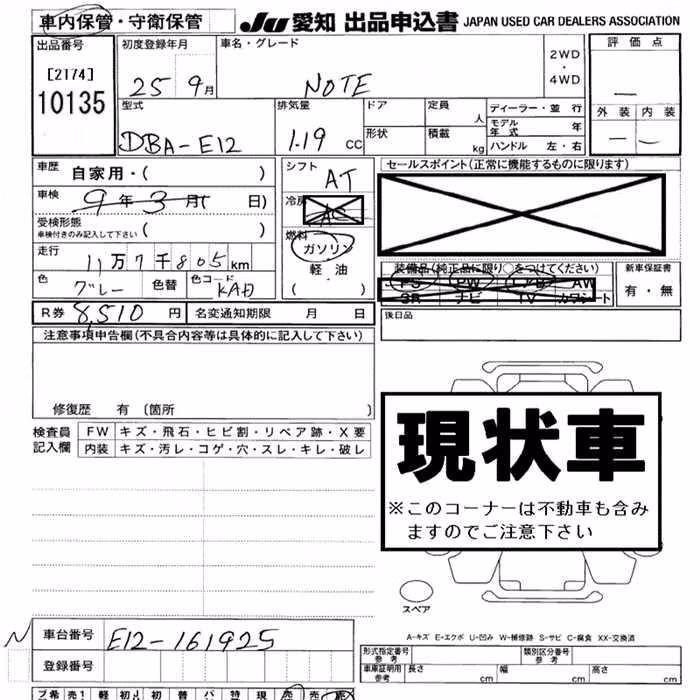 車内保管・守衛保管 JU 愛知 出品申込書 JAPAN USED CAR DEALERS ASSOCIATION
出品番号 初度登録年月 車名・グレード 2WD・4WD 評価点
[2174] 25 9月 NOTE —
10135
型式 排気量 ドア 定員 人 ディーラー・並行 外装 内装
モデル年式 年
DBA-E12 1.19 CC 形状 積載 kg ハンドル 左・右 — —
車歴 自家用・( ) シフト AT セールスポイント(正常に機能するものに限ります)
車検 9年3月( 日) 冷房 AC
受検形態 ( )
車検付きのみ記入して下さい
燃料 ガソリン
走行 11万7千805km 軽油
( )
装備品(純正品に限り○をつけてください) 新車保証書
PS PW AW 有・無
SR ナビ TV カワシート
色 グレー 色替 色コード KAD
R券 8,510円 名変通知期限 月 日 後日品
注意事項申告欄(不具合内容等は具体的に記入して下さい)
修復歴 有(箇所 )
現状車
※このコーナーは不動車も含み
ますのでご注意下さい
検査員 FW キズ・飛石・ヒビ割・リペア跡・X要
記入欄 内装 キズ・汚レ・コゲ・穴・スレ・キレ・破レ
スペア
A-キズ E-エクボ U-凹み W-補修跡 S-サビ C-腐食 XX-交換済
N 車台番号 E12-161925
登録番号
形式指定番号 参考 類別区分番号 参考
車庫証明用 参考 長さ cm 幅 cm 高さ cm